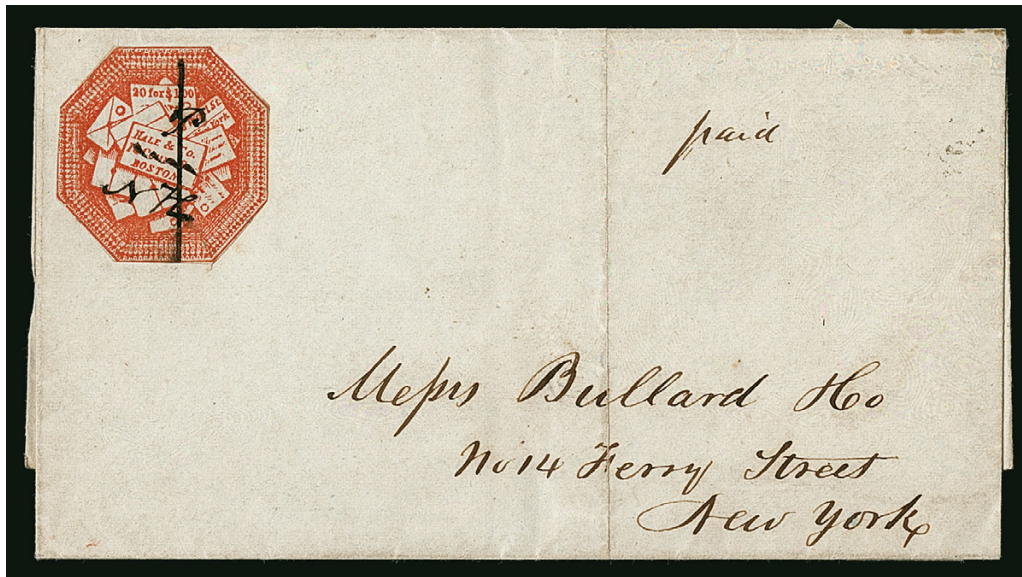 20 for $1.00
HALE & Co.
BOSTON
York
paid
Meſsrs Bullard & Co
No 14 Ferry Street
New York